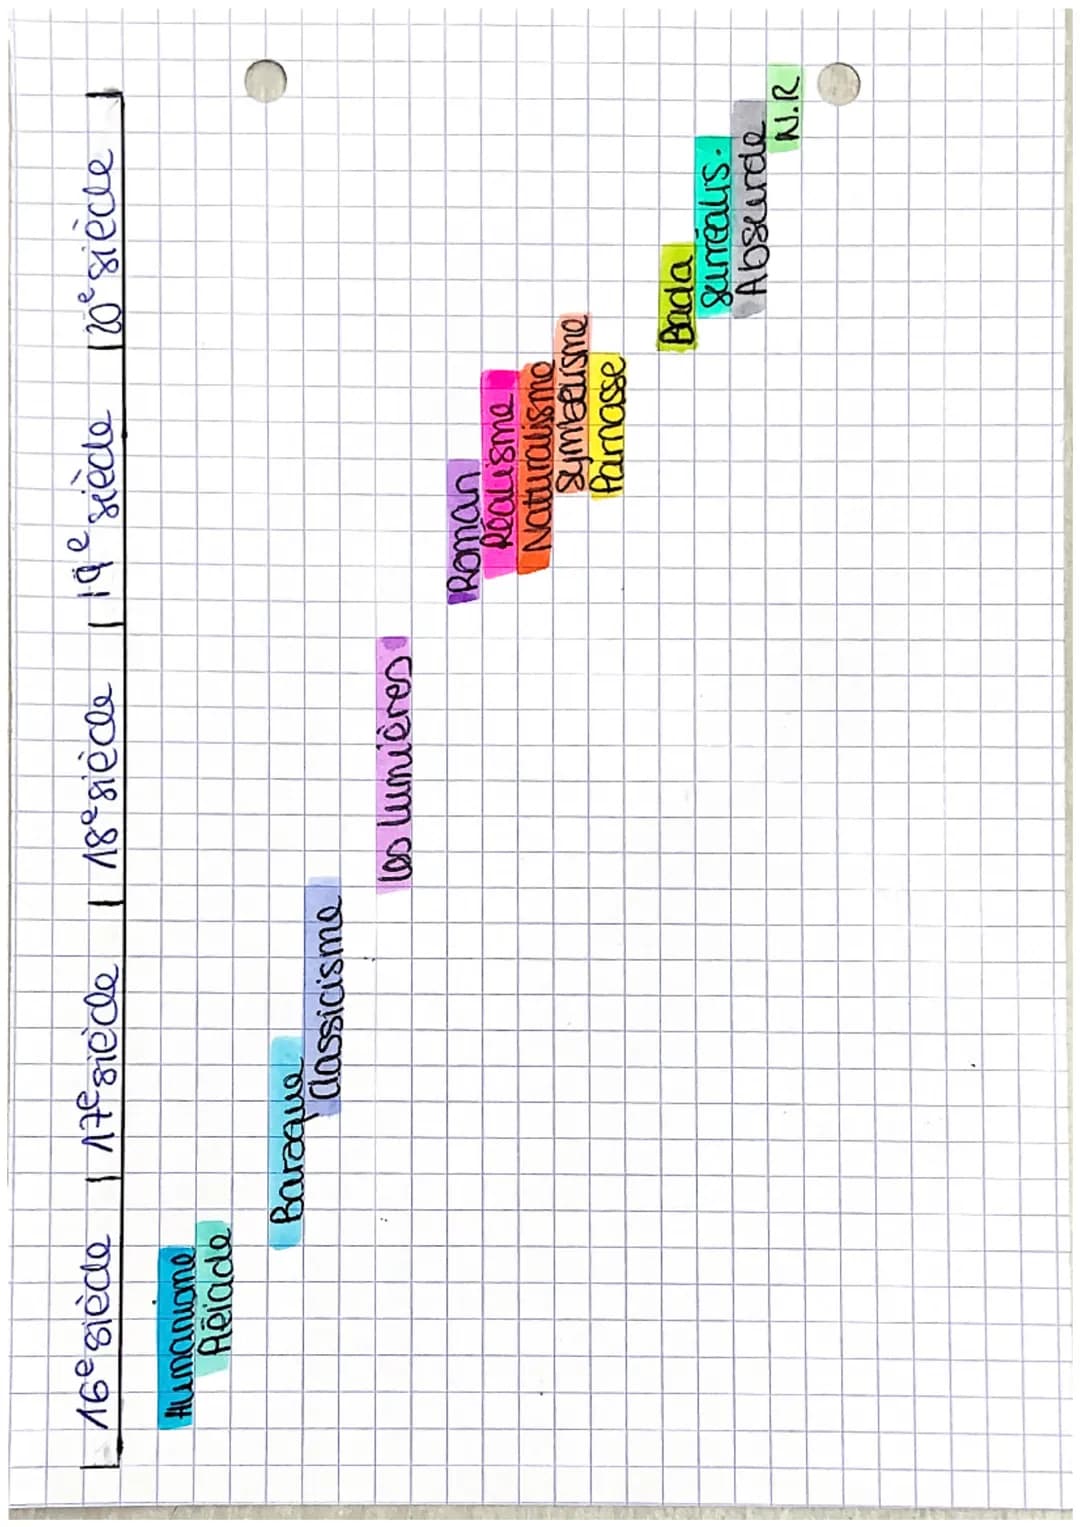 16e siècle | 17e siècle | 18e siècle | 19e siècle | 20e siècle
Humanisme
Pléiade
Baroque
Classicisme
les lumières
Roman
Réalisme
Naturalisme
Symbolisme
Parnasse
Dada
surréalis.
Absurde
N.R